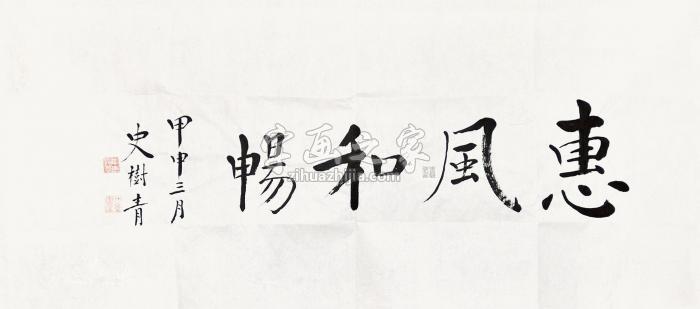 惠風和暢
甲申三月
史樹青
字画之家
zihuazhijia.com